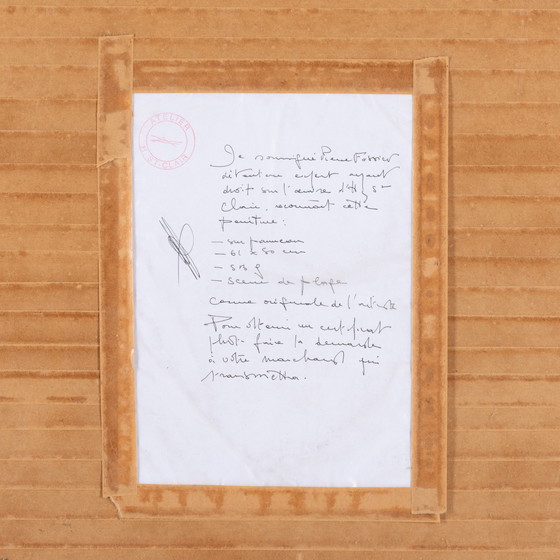 ATELIER
H. ST-CLAIR
Je soussigné Pierre
détenteur expert ayant
droit sur l'œuvre d'H St
Clair, reconnaît cette
peinture :
— sur panneau
— 61 x 50 cm
— sbs g
— scène de plage
comme originale de l'artiste
Pour obtenir un certificat
photo faire la demande
à votre marchand qui
transmettra.